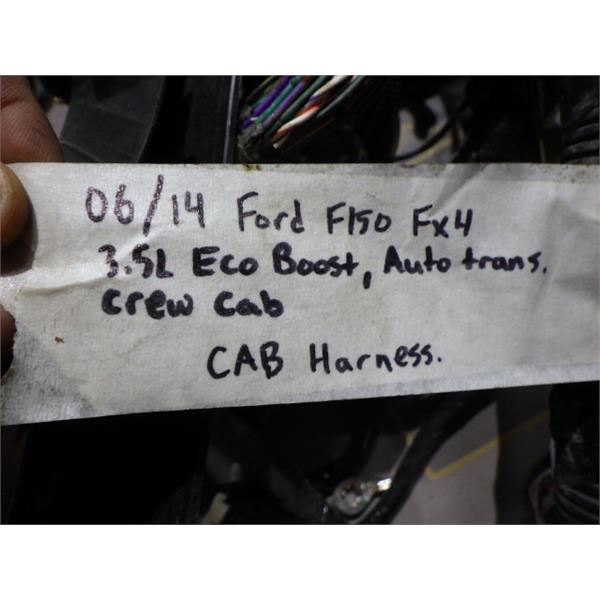 06/14 Ford F150 Fx4
3.5L Eco Boost, Auto trans.
crew cab
CAB Harness.